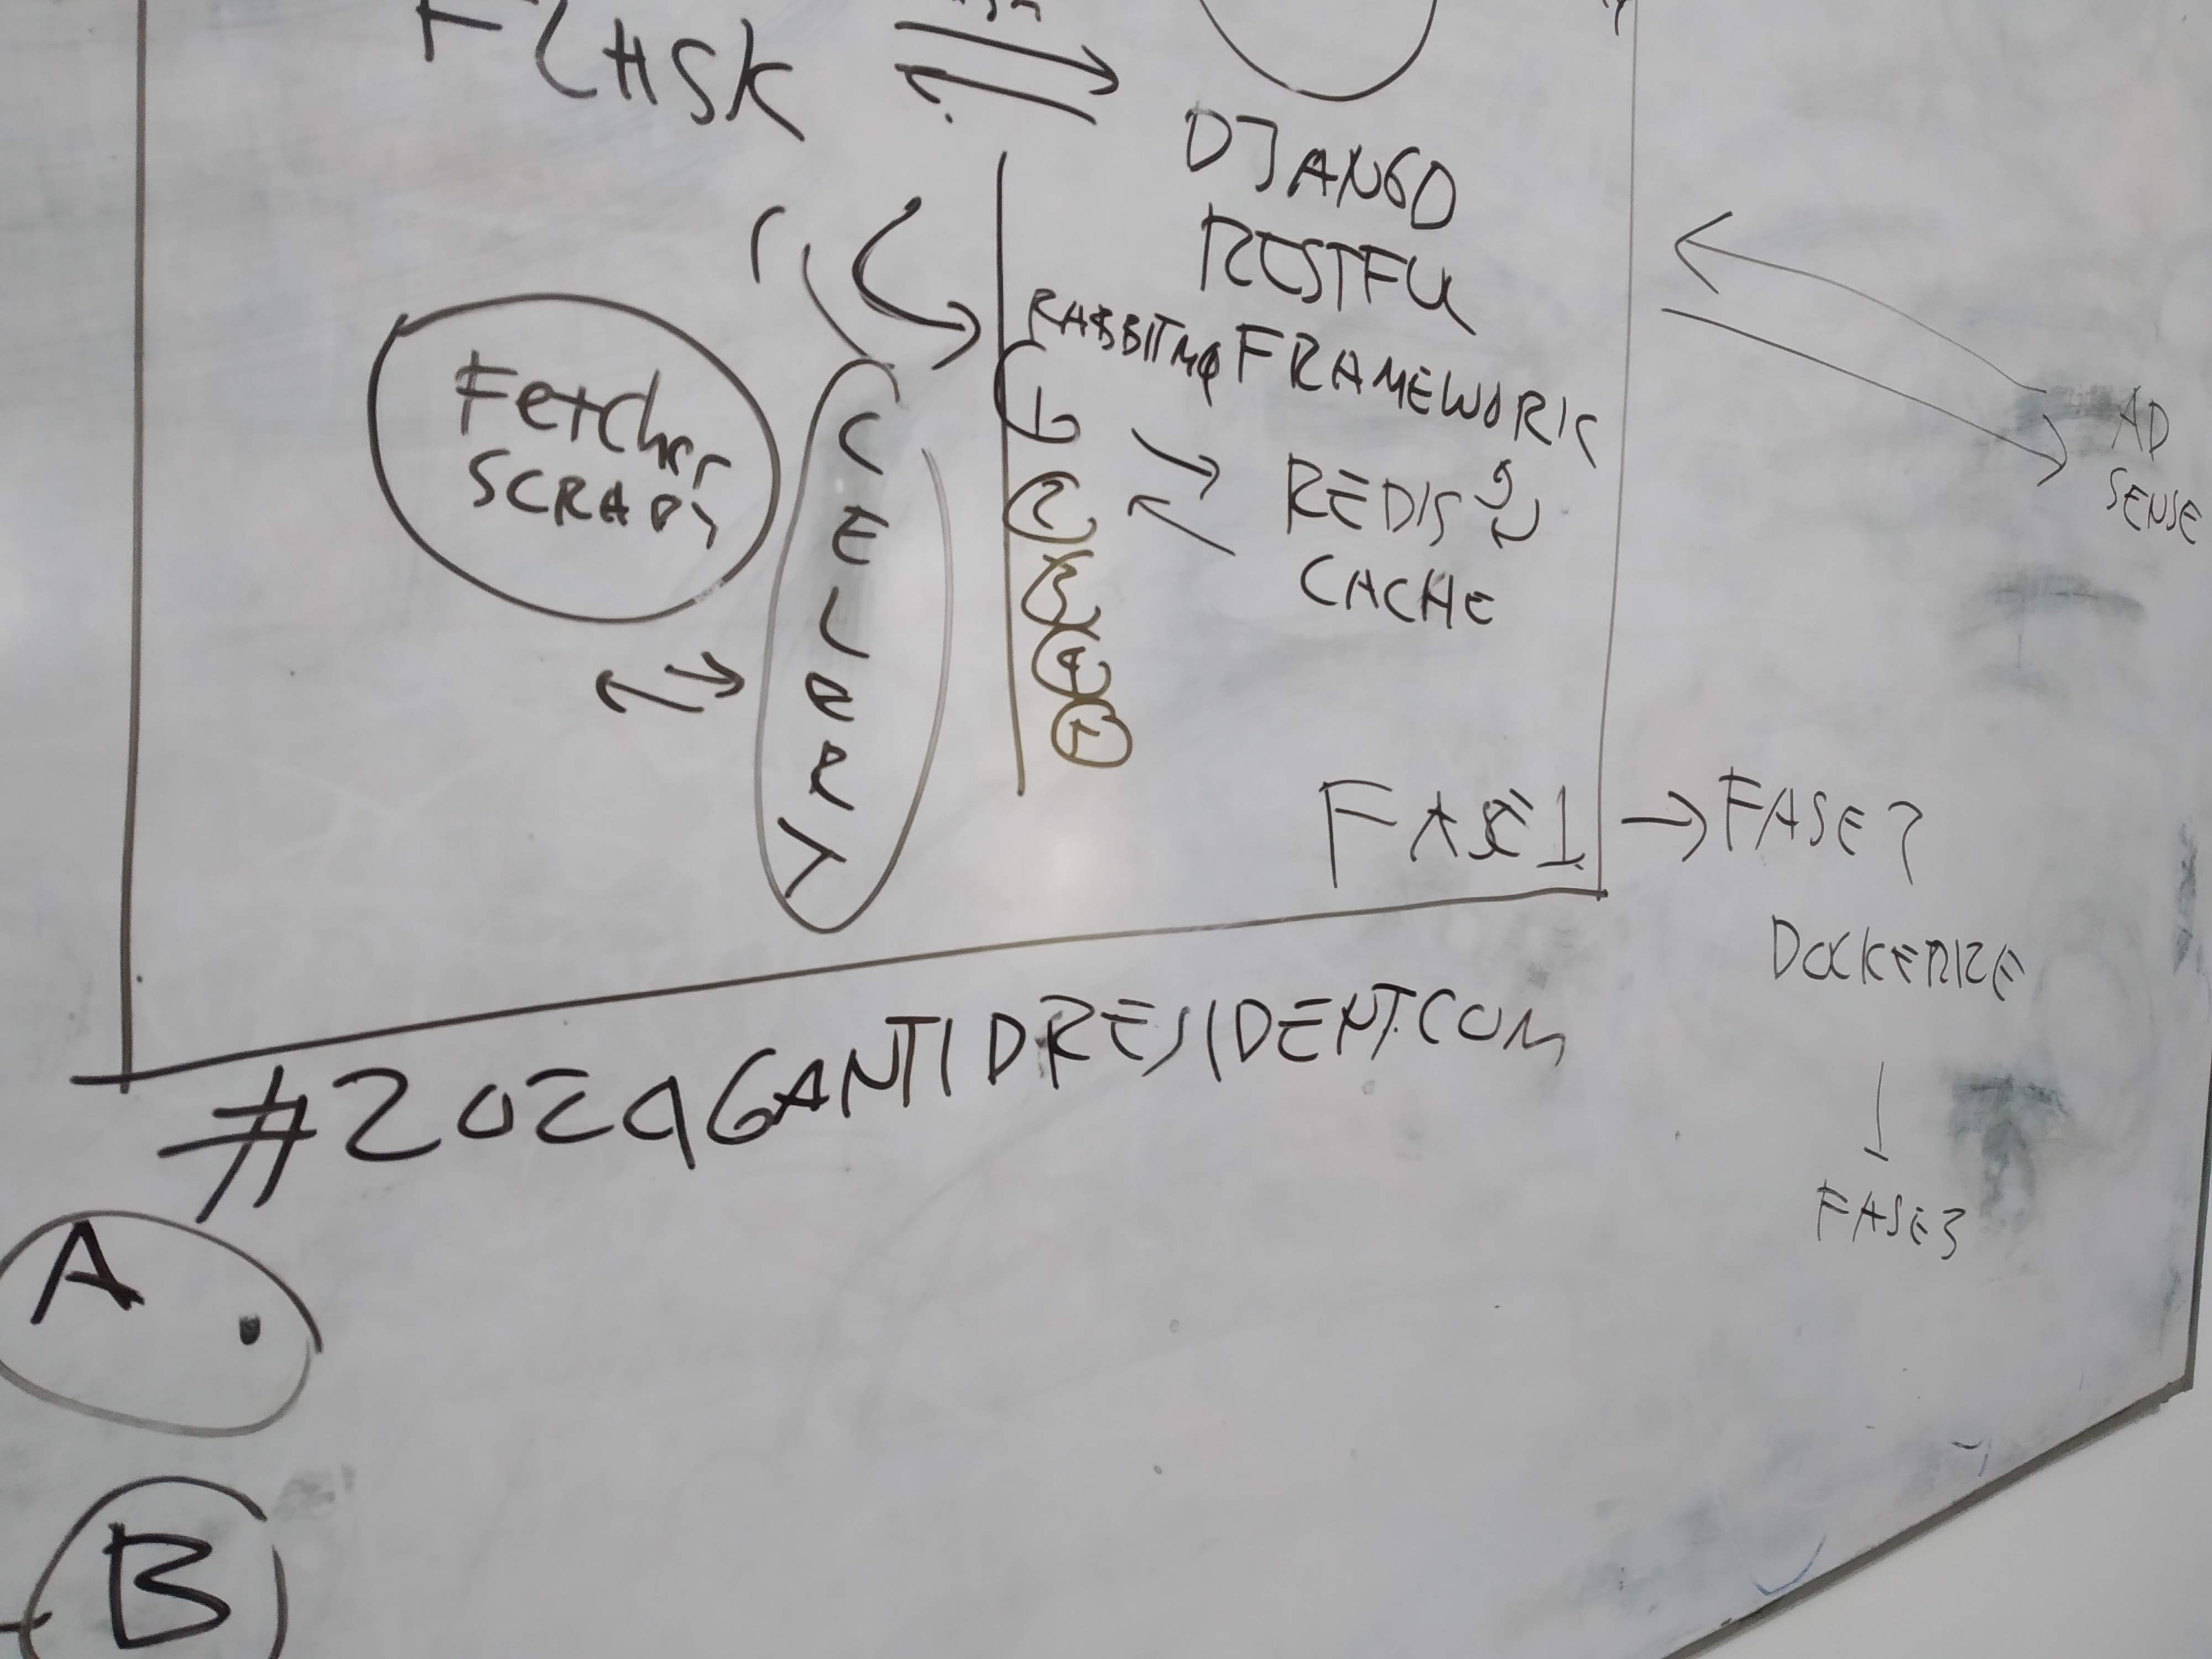 FLASK
DJANGO
RESTFUL
RABBITMQ FRAMEWORK
Fetcher
SCRAPY
CELERY
1
2
3
4
REDIS
CACHE
AD
SENSE
FASE 1
FASE 2
DOCKERIZE
FASE 3
A
B